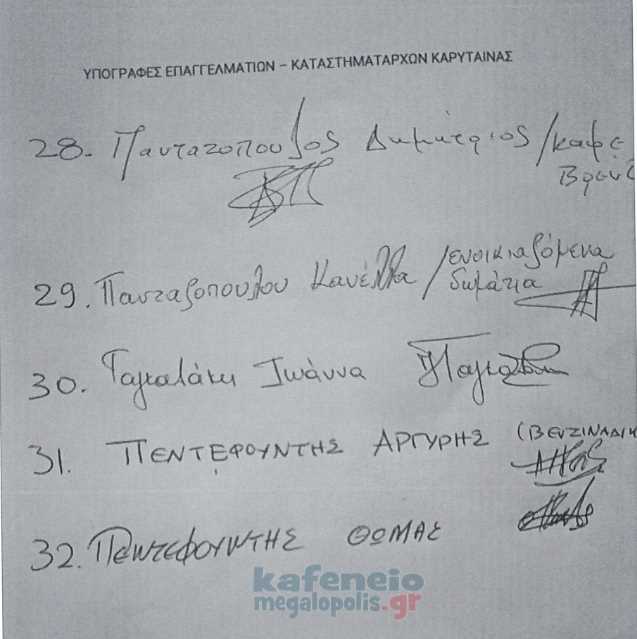 ΥΠΟΓΡΑΦΕΣ ΕΠΑΓΓΕΛΜΑΤΙΩΝ – ΚΑΤΑΣΤΗΜΑΤΑΡΧΩΝ ΚΑΡΥΤΑΙΝΑΣ
28. Πανταζοπουλος Δημήτριος / καφε
29. Πανταζοπουλου Κανέλλα / ενοικιαζόμενα
δωμάτια
30. Ιωάννα
31. ΠΕΝΤΕΦΟΥΝΤΗΣ ΑΡΓΥΡΗΣ (ΒΕΝΖΙΝΑΔΙΚ
32. ΠΕΝΤΕΦΟΥΝΤΗΣ ΘΩΜΑΣ
kafeneio
megalopolis.gr